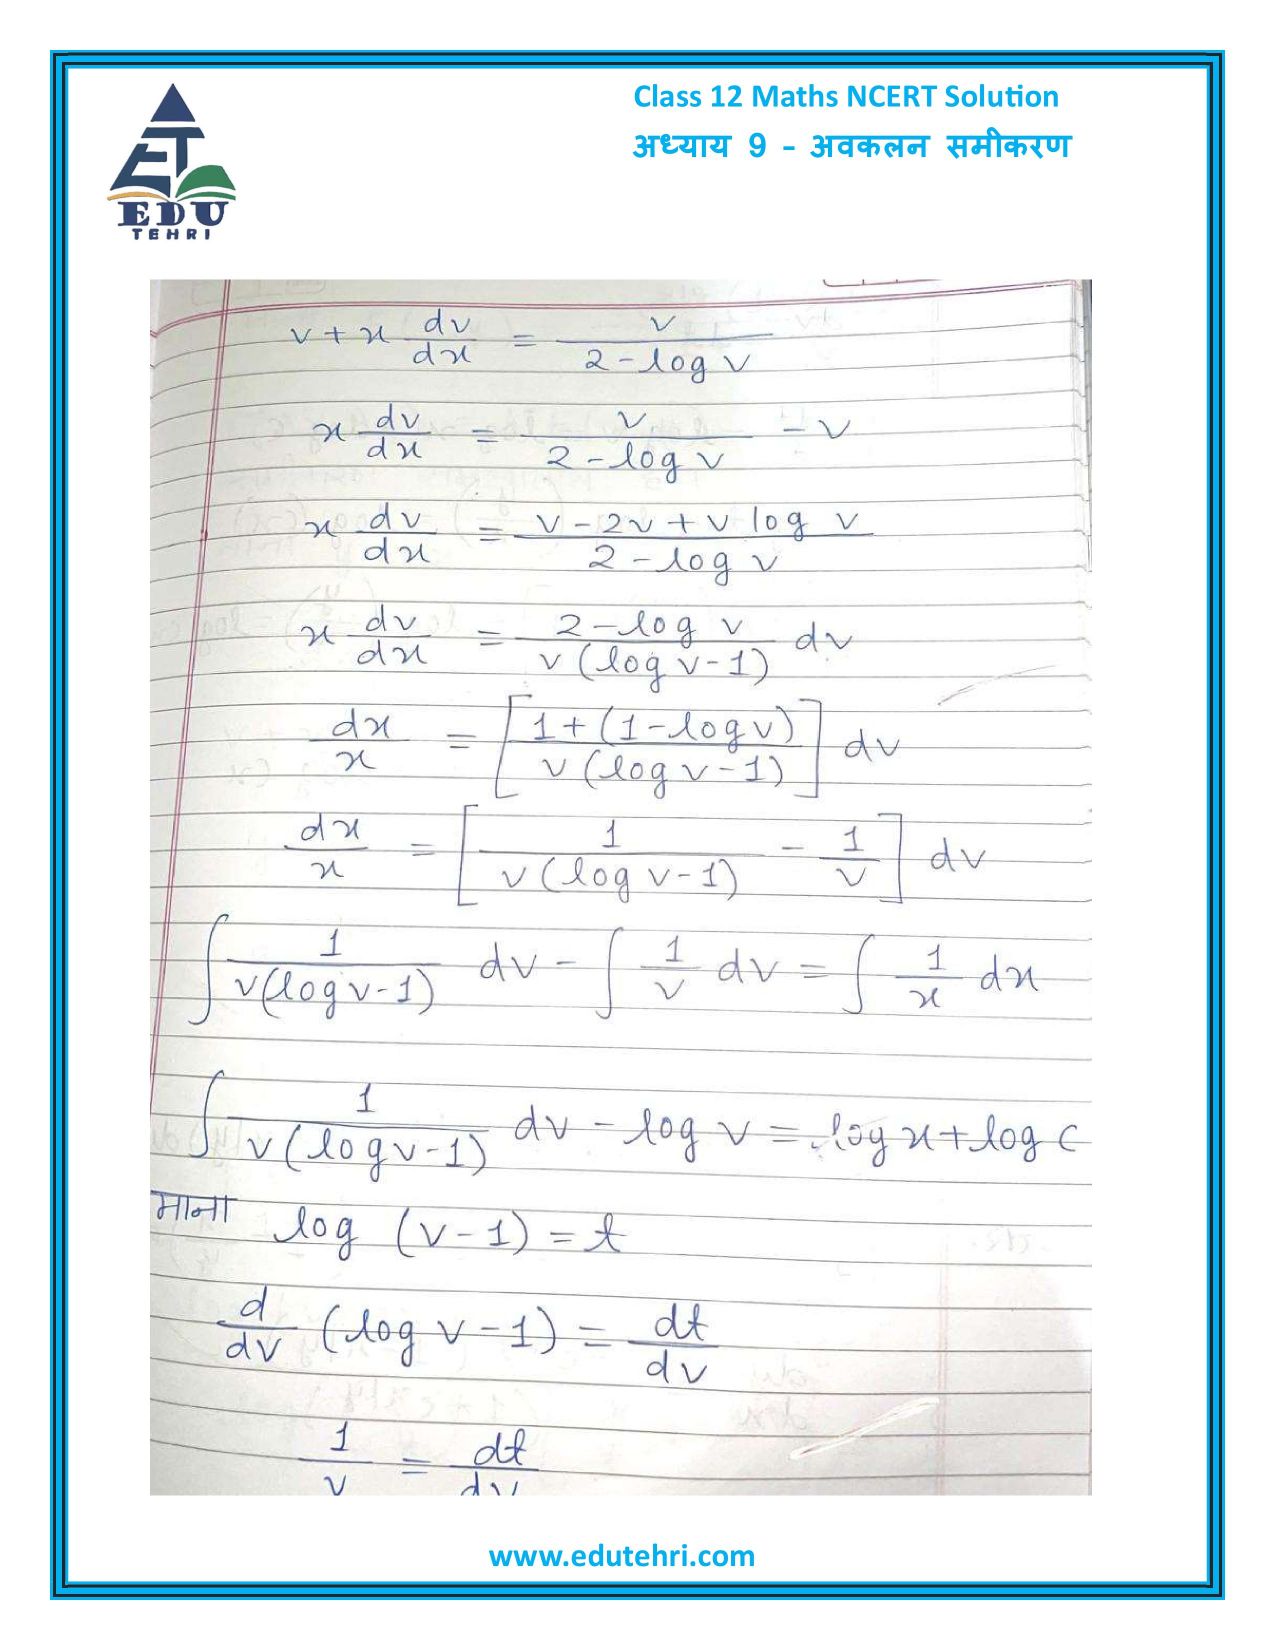 Class 12 Maths NCERT Solution
अध्याय 9 - अवकलन समीकरण
EDU
TEHRI
v + x dv/dx = v/(2 - log v)
x dv/dx = v/(2 - log v) - v
x dv/dx = (v - 2v + v log v)/(2 - log v)
x dv/dx = (2 - log v)/(v (log v - 1)) dv
dx/x = [(1 + (1 - log v))/(v (log v - 1))] dv
dx/x = [1/(v (log v - 1)) - 1/v] dv
∫ 1/(v(log v - 1)) dv - ∫ 1/v dv = ∫ 1/x dx
∫ 1/(v (log v - 1)) dv - log v = log x + log C
माना log (v - 1) = t
d/dv (log v - 1) = dt/dv
1/v = dt/dv
www.edutehri.com